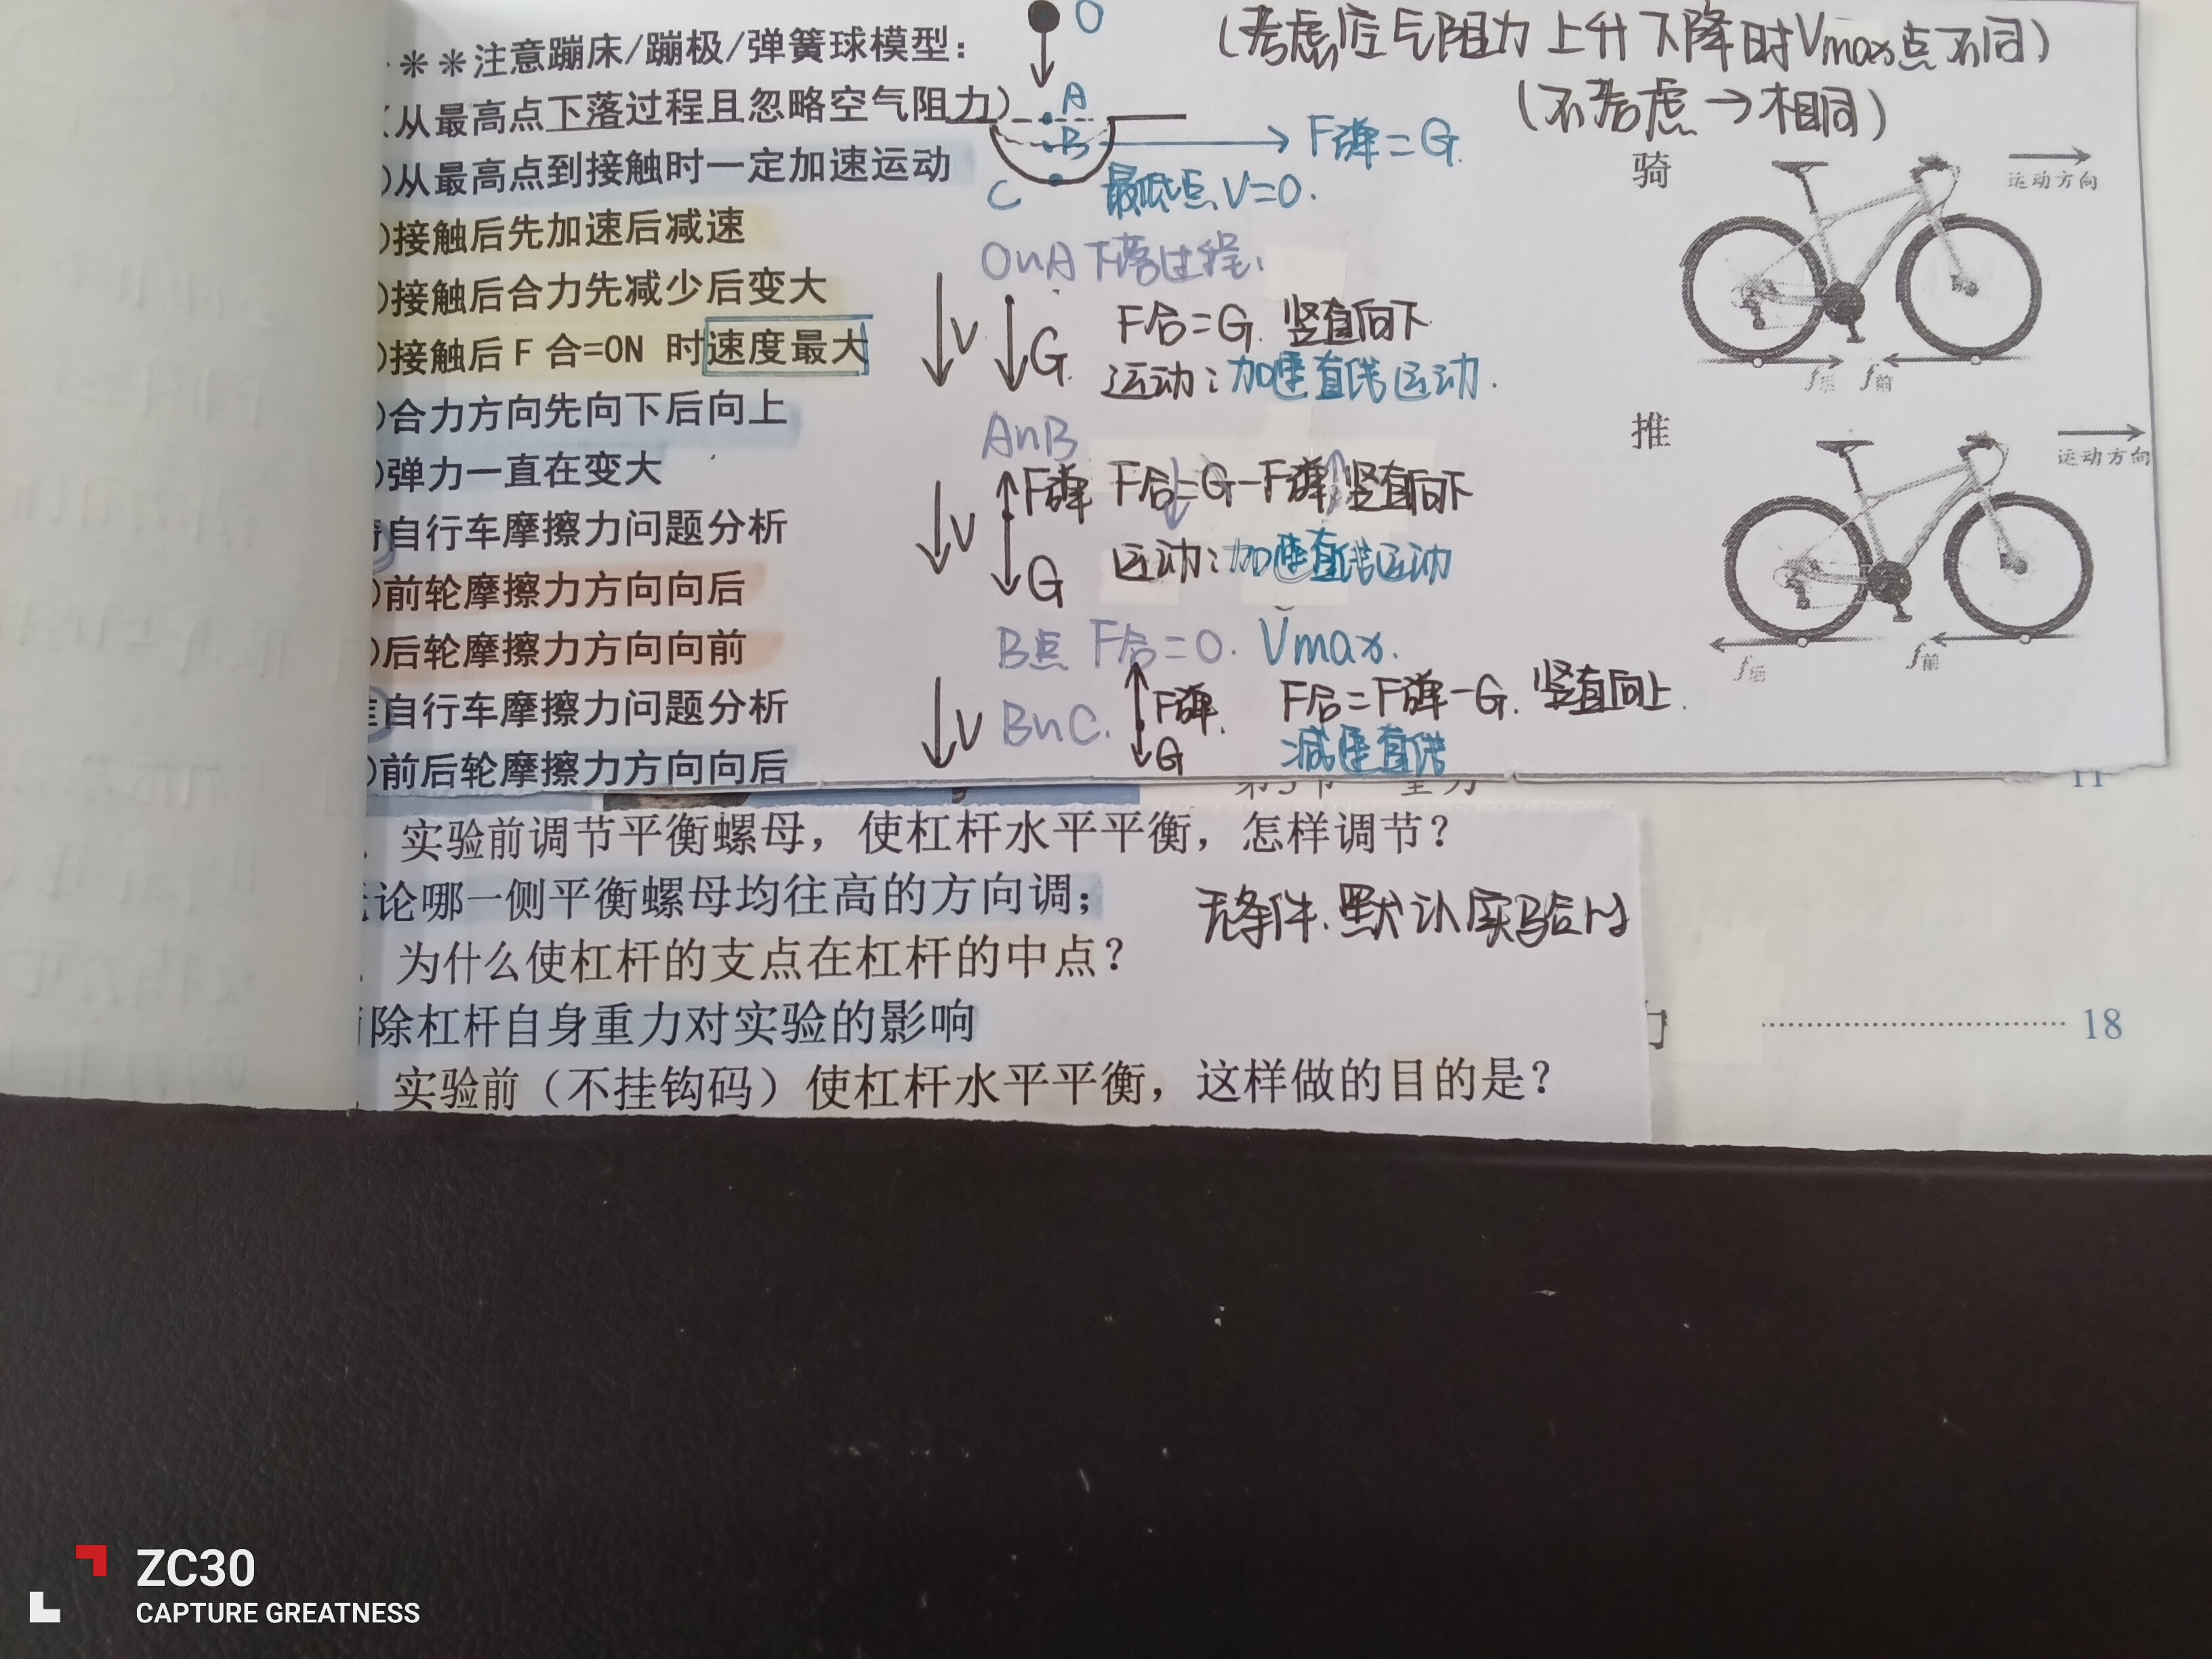 ＊＊注意蹦床/蹦极/弹簧球模型：
（从最高点下落过程且忽略空气阻力）
)从最高点到接触时一定加速运动
)接触后先加速后减速
)接触后合力先减少后变大
)接触后 F 合=0N 时速度最大
)合力方向先向下后向上
)弹力一直在变大
自行车摩擦力问题分析
)前轮摩擦力方向向后
)后轮摩擦力方向向前
自行车摩擦力问题分析
)前后轮摩擦力方向向后
O
A
B
C
F弹=G.
最低点V=0.
(考虑空气阻力上升下降时Vmax点不同)
(不考虑→相同)
O~A下落过程.
V
G
F合=G. 竖直向下
运动:加速直线运动.
A~B
V
F弹
G
F合=G-F弹 竖直向下
运动:加速直线运动
B点 F合=0. Vmax.
V
B~C.
F弹.
G
F合=F弹-G. 竖直向上.
减速直线
骑
运动方向
f后
f前
推
运动方向
f后
f前
11
实验前调节平衡螺母，使杠杆水平平衡，怎样调节？
论哪一侧平衡螺母均往高的方向调；
无条件.默认实验时
为什么使杠杆的支点在杠杆的中点？
除杠杆自身重力对实验的影响
实验前（不挂钩码）使杠杆水平平衡，这样做的目的是？
18
ZC30
CAPTURE GREATNESS